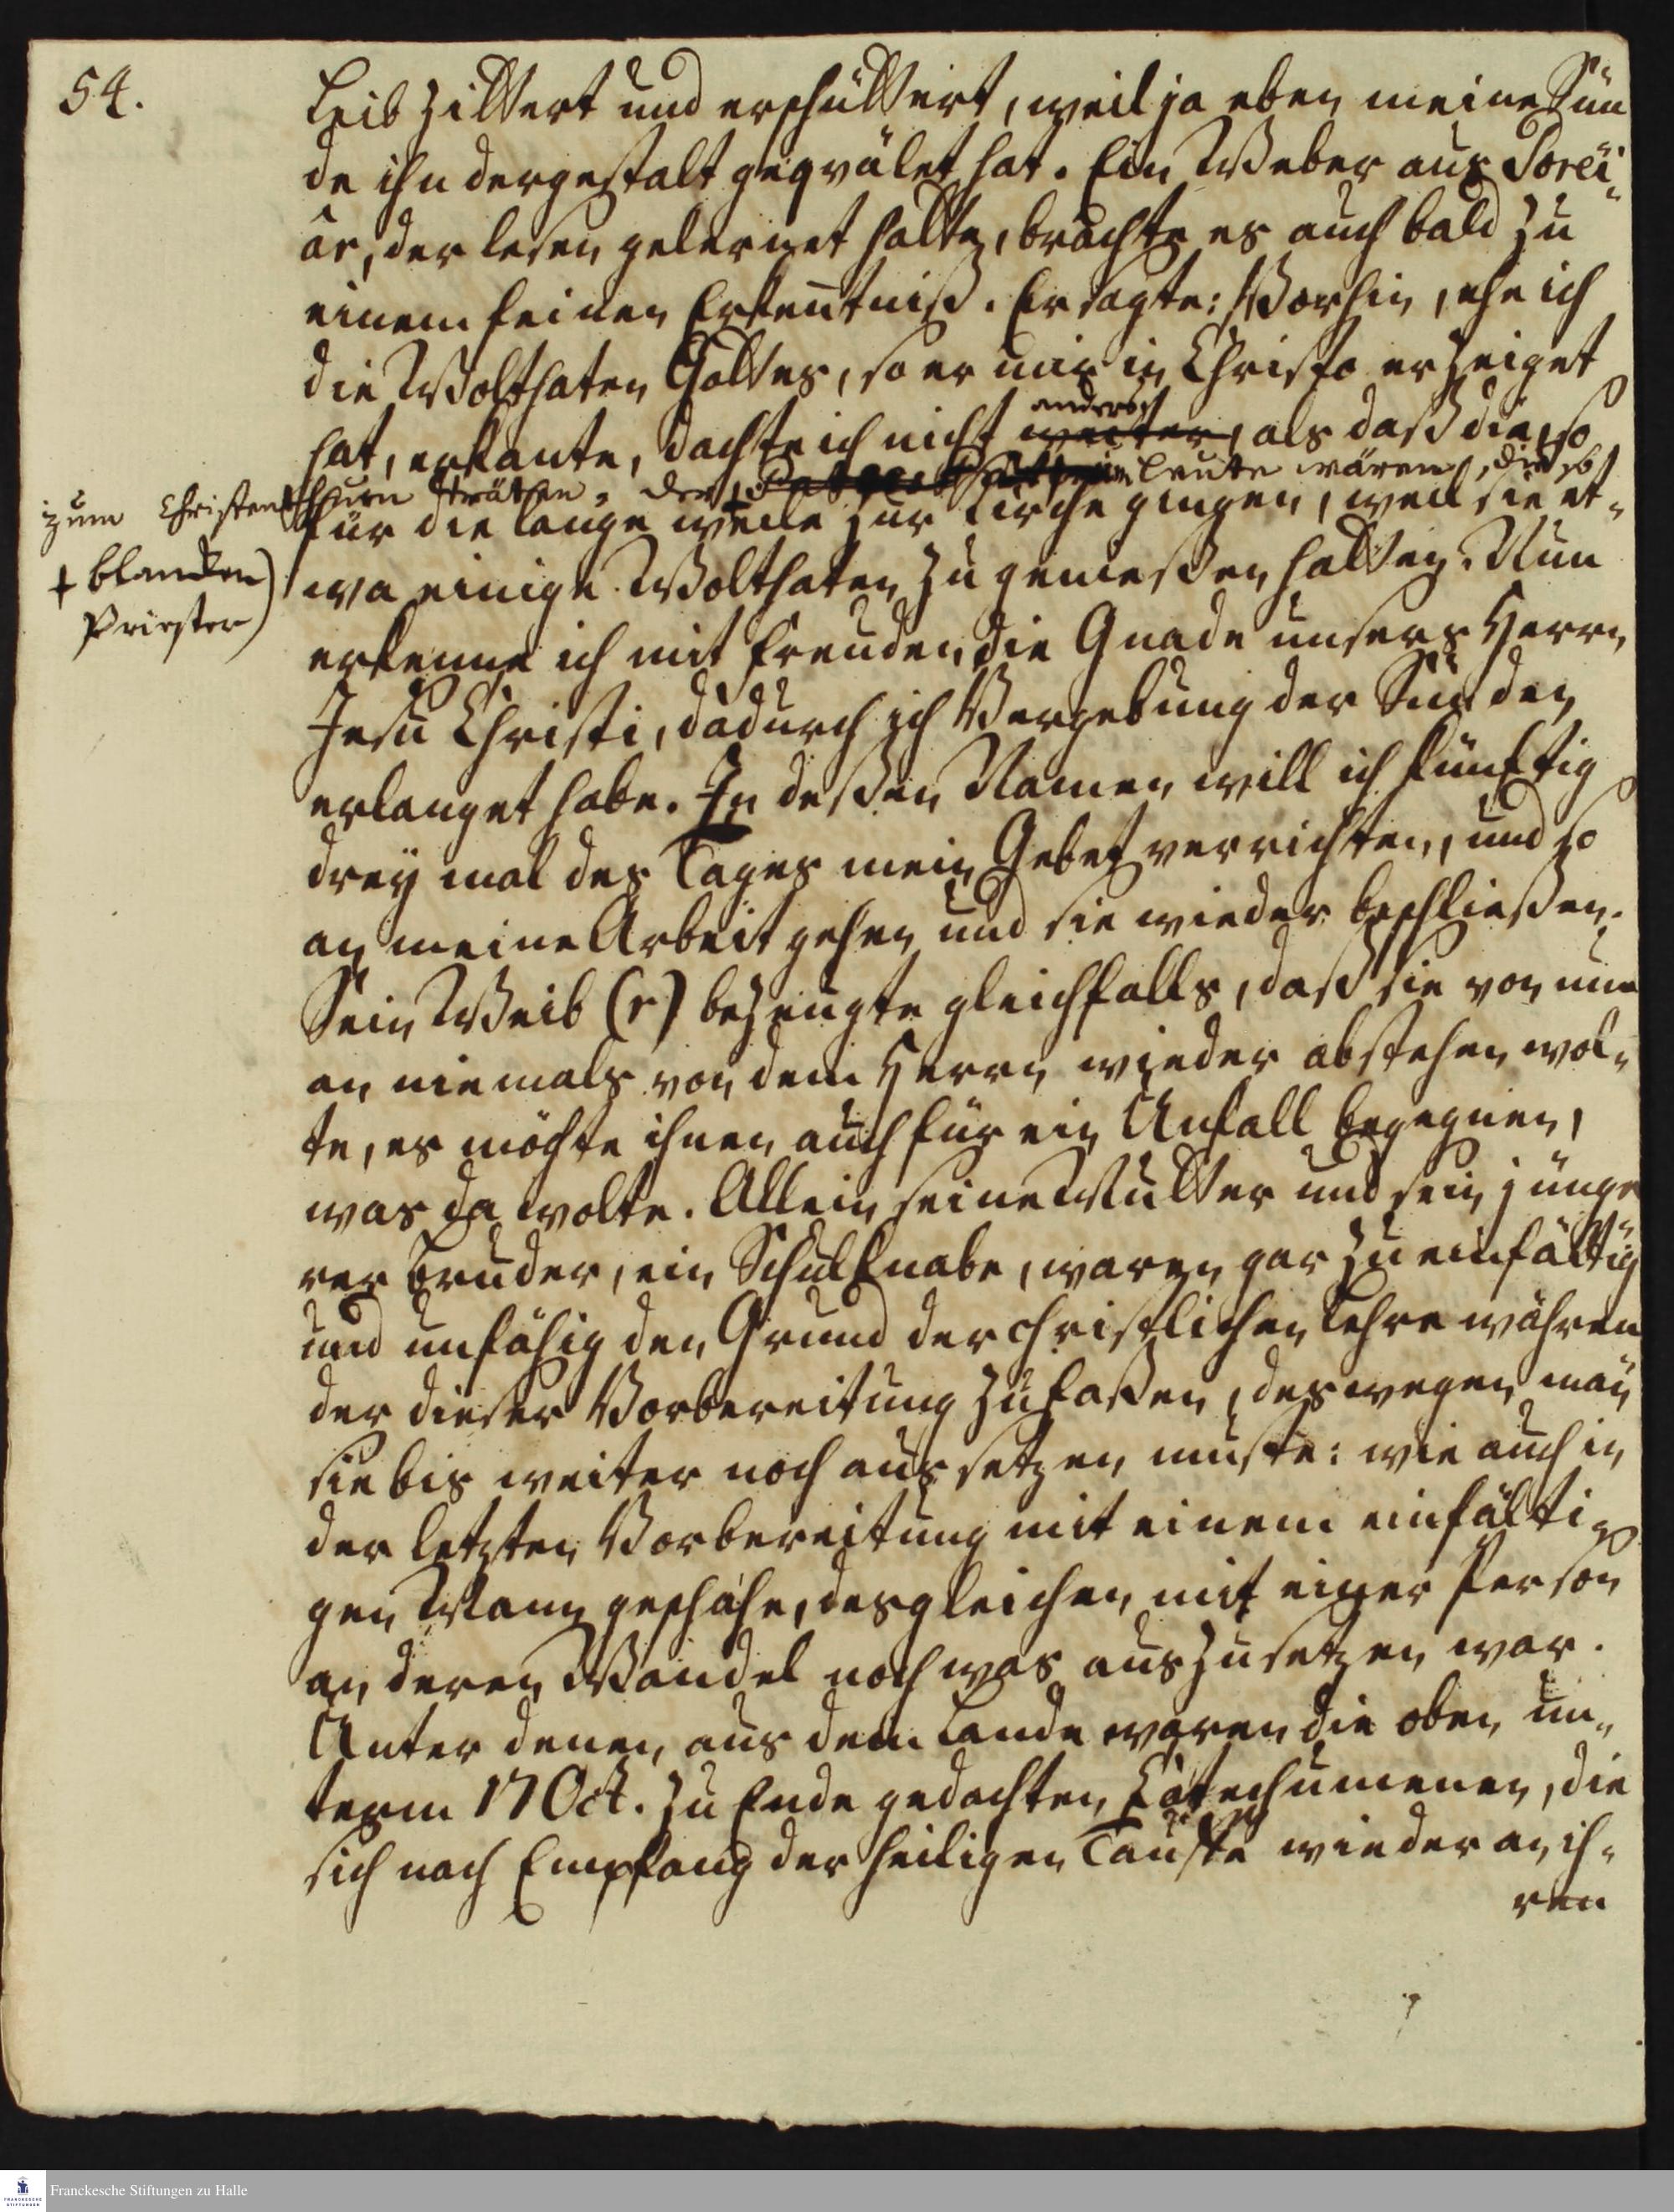 54.
Leib zittert und erschüttert, weil ja eben meine Sün
de ihn dergestalt geqvälet hat. Ein Weber aus Poreí„
âr, der lesen gelernet hatte, brachte es auch bald zu
einem feinen Erkentniß. Er sagte: Vorhin, ehe ich
die Wolthaten Gottes, so er mir in Christo erzeiget
anders
hat, erkante, dachte ich nicht weiter, als daß die, so
zum Christenthum träthen, der Leute wären, die
für die lange weile zur Kirche gingen, weil sie et„
+ blancken
Priester)
wa einige Wolthaten zu genießen hätten. Nun
erkenne ich mit Freuden die Gnade unsers Herrn
Jesu Christi, dadurch ich Vergebung der Sünden
erlanget habe. In deßen Namen will ich künftig
drey mal des Tages mein Gebet verrichten, und so
an meine Arbeit gehen und sie wieder beschließen.
Sein Weib (r) bezeugte gleichfalls, daß sie von nun
an niemals von dem Herrn wieder abstehen wol„
te, es möchte ihnen auch für ein Unfall begegnen,
was da wolte. Allein seine Mutter und sein jünge
rer Bruder, ein Schulknabe, waren gar zu einfältig
und unfähig den Grund der christlichen Lehre währen
der dieser Vorbereitung zu faßen, deswegen man
sie bis weiter noch aussetzen muste: wie auch in
der letzten Vorbereitung mit einem einfälti„
gen Mann geschahe, desgleichen mit einer Person
an deren Wandel noch was auszusetzen war.
Unter denen aus dem Lande waren die oben un„
term 17 Oct. zu Ende gedachten Catechumenen, die
sich nach Empfang der heiligen Tauffe wieder an ih„
ren
Franckesche Stiftungen zu Halle